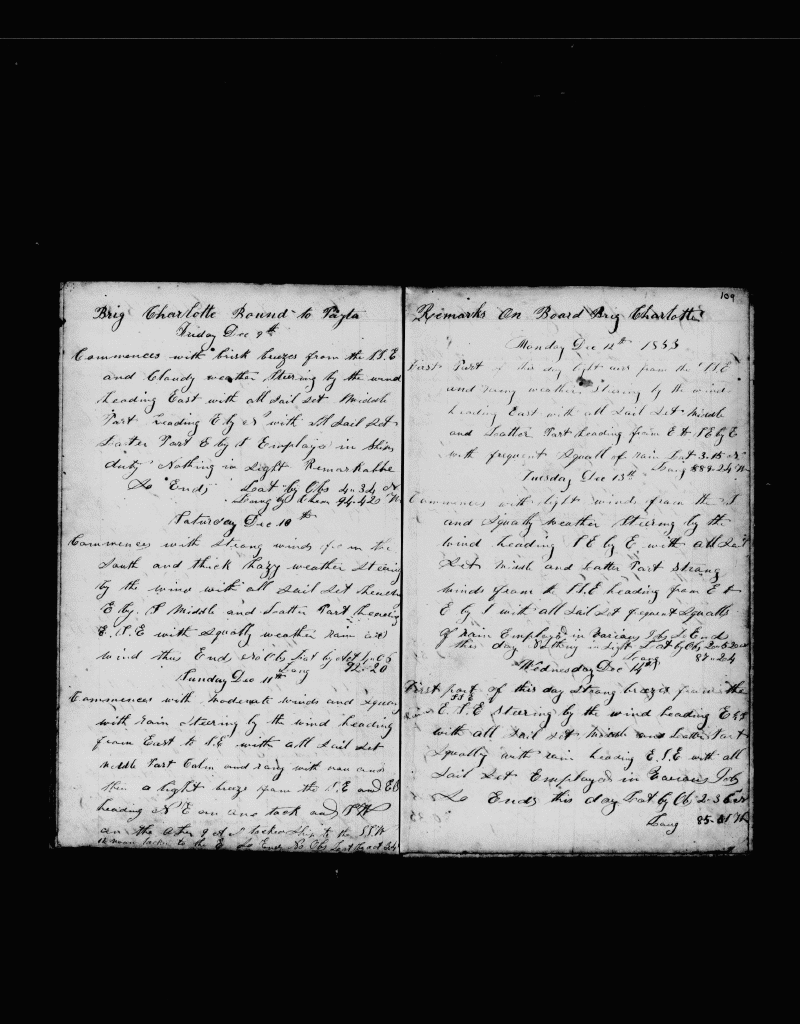 Brig Charlotte Bound to Payta
Friday Dec 9th
Commences with brisk breezes from the S.E
and Cloudy weather Steering by the wind
heading East with all sail set Middle
Part heading E by S with all sail set
Latter Part E by S Employed in Ships
duty Nothing in Sight Remarkable
So Ends Lat by Obs 4.34 N
Long by Chron 94.42 W
Saturday Dec 10th
Commences with Strong winds from the
South and thick hazy weather Steering
by the wind with all sail set
E by S Middle and Latter Part heading
E.S.E with Squally weather rain and
wind thus End No Obs Lat by Act 4.06
Long 92.20
Sunday Dec 11th
Commences with Moderate winds and squally
with rain Steering by the wind heading
from East to S.E with all sail set
middle Part Calm and rainy with rain and
then a light breeze from the S.E and
heading N E on one tack and S W
on the other Tacked Ship to the SSW
tacked to the E So Ends No Obs Lat
109
Remarks On Board Brig Charlotte
Monday Dec 12th 1853
First Part of this day light airs from the S.E
and rainy weather Steering by the wind
heading East with all sail set Middle
and Latter Part heading from E to S E by E
with frequent Squall of rain Lat 3.15 N
Long 89.24 W
Tuesday Dec 13th
Commences with light winds from the S
and Squally weather Steering by the
wind heading S E by E with all Sail
Set Middle and Latter Part strong
winds from the S.E heading from E to
E by S with all sail set frequent Squalls
of rain Employed in Various Jobs So Ends
this day Nothing in Sight Lat by Obs
Long 87.24
Wednesday Dec 14th
First part of this day strong breezes from the
SSE
E.S.E steering by the wind heading
with all sail set Middle and Latter Part
Squally with rain heading E.S.E with all
Sail Set Employed in Various Jobs
So Ends this day Lat by Obs 2.36 N
Long 85.51 W